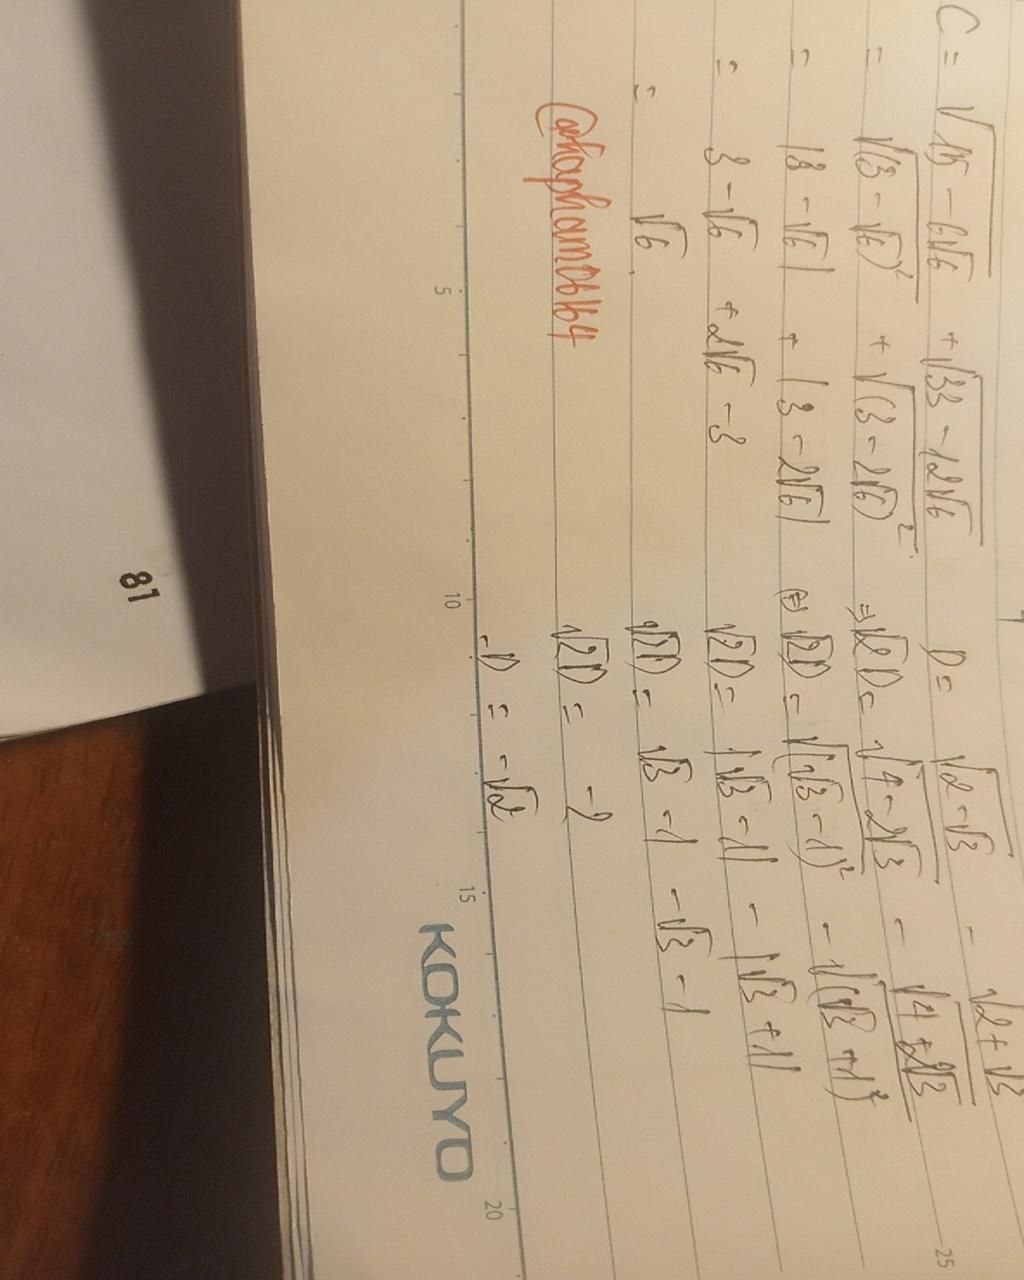 C = √(15 - 6√6) + √(33 - 12√6)
= √((3 - √6)²) + √((3 - 2√6)²)
= |3 - √6| + |3 - 2√6|
= 3 - √6 + 2√6 - 3
= √6
@nhapham06164
D = √(2 - √3) - √(2 + √3)
⇒ √2D = √(4 - 2√3) - √(4 + 2√3)
(=) √2D = √((√3 - 1)²) - √((√3 + 1)²)
√2D = |√3 - 1| - |√3 + 1|
√2D = √3 - 1 - √3 - 1
√2D = -2
-D = -√2
5 10 15 20 25
KOKUYO
81